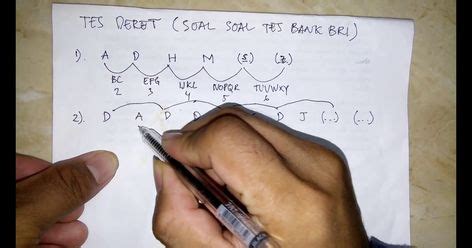 TES DERET (SOAL SOAL TES BANK BRI)
1). A D H M (S) (Z)
BC EFG IJKL NOPQR TUVWXY
2 3 4 5 6
2). D A D D D J (...) (...)